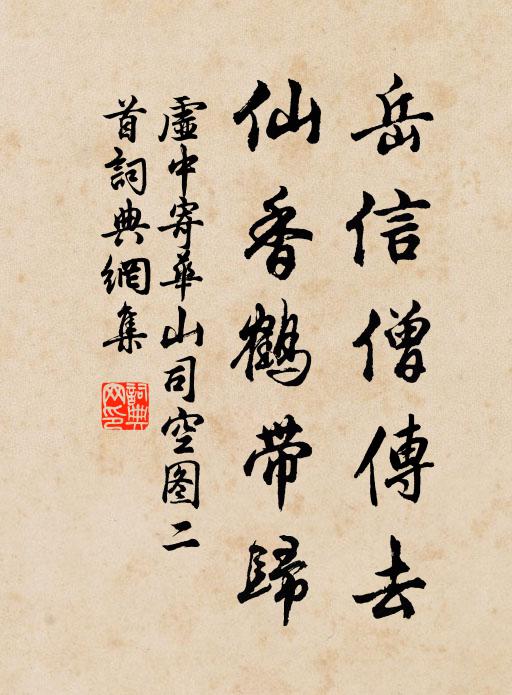 岳信僧傳去
仙香鶴带歸
虛中寄華山司空图二
首詞典網集
詞典网印